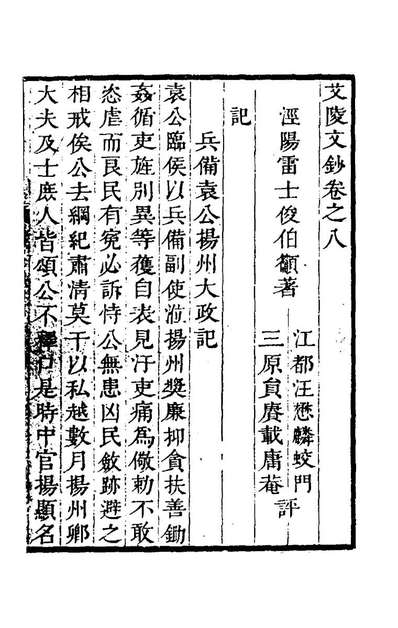 艾陵文鈔卷之八
涇陽雷士俊伯籲著
江都汪懋麟蛟門
三原負賡載庸菴
評
記
兵備袁公揚州大政記
袁公臨侯以兵備副使涖揚州獎廉抑貪扶善鋤
姦循吏旌别異等獲自表見汙吏痛爲儆勅不敢
恣虐而良民有寃必訴恃公無患凶民斂跡避之
相戒俟公去綱紀肅清莫干以私越數月揚州鄉
大夫及士庶人皆頌公不釋口是時中官揚顯名